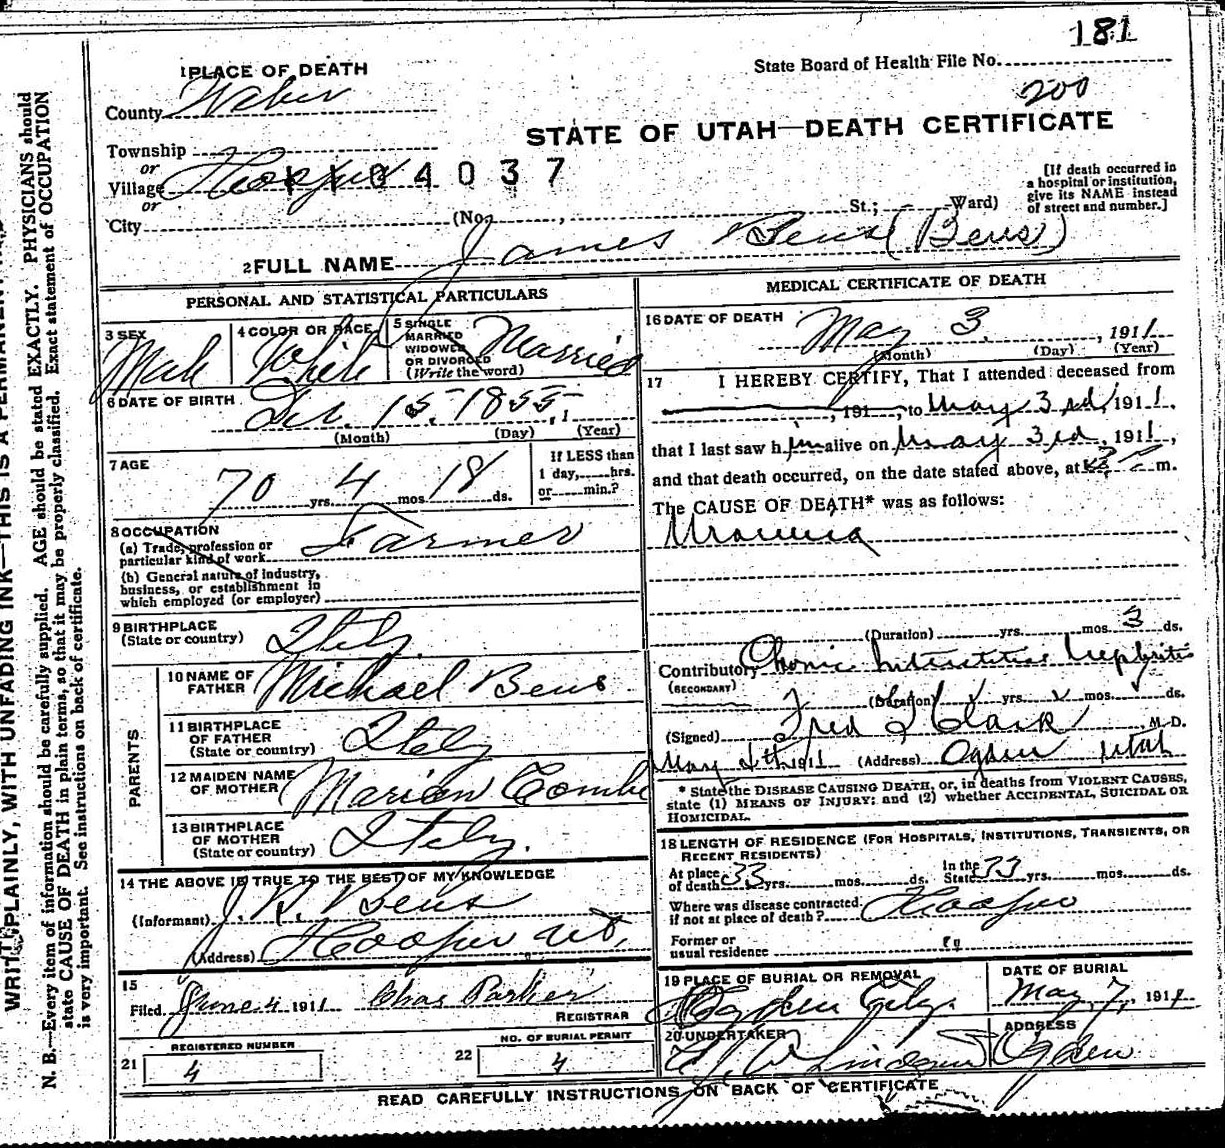 181
State Board of Health File No.
200
1 PLACE OF DEATH
County Weber
STATE OF UTAH—DEATH CERTIFICATE
Township
or
Village Hooper
1104037
or
City (No. , St.; Ward)
[If death occurred in
a hospital or institution,
give its NAME instead
of street and number.]
2 FULL NAME James Beus (Beus)
PERSONAL AND STATISTICAL PARTICULARS
3 SEX Male
4 COLOR OR RACE White
5 SINGLE
MARRIED
WIDOWED
OR DIVORCED
(Write the word) Married
6 DATE OF BIRTH Dec. 15. 1855, 1
(Month) (Day) (Year)
7 AGE
70 yrs. 4 mos. 18 ds.
If LESS than
1 day, hrs.
or min.?
8 OCCUPATION
(a) Trade, profession or
particular kind of work Farmer
(b) General nature of industry,
business, or establishment in
which employed (or employer)
9 BIRTHPLACE
(State or country) Itely
PARENTS
10 NAME OF
FATHER Michael Beus
11 BIRTHPLACE
OF FATHER
(State or country) Itely
12 MAIDEN NAME
OF MOTHER Marion Combe
13 BIRTHPLACE
OF MOTHER
(State or country) Itely.
14 THE ABOVE IS TRUE TO THE BEST OF MY KNOWLEDGE
(Informant) J. R. Beus
(Address) Hooper Ut,
15
Filed June 4 1911 Chas Parker
REGISTRAR
21 REGISTERED NUMBER
4
22 NO. OF BURIAL PERMIT
4
MEDICAL CERTIFICATE OF DEATH
16 DATE OF DEATH
May 3, 1911
(Month) (Day) (Year)
17 I HEREBY CERTIFY, That I attended deceased from
, 191 , to May 3rd, 1911,
that I last saw him alive on May 3rd, 1911,
and that death occurred, on the date stated above, at m.
The CAUSE OF DEATH* was as follows:
Uraemia
(Duration) yrs. mos. 3 ds.
Contributory Chonic Interstitial Nephritis
(SECONDARY)
(Duration) yrs. mos. ds.
(Signed) Fred Clark, M.D.
May 4th 1911 (Address) Ogden Utah
* State the DISEASE CAUSING DEATH, or, in deaths from VIOLENT CAUSES,
state (1) MEANS OF INJURY; and (2) whether ACCIDENTAL, SUICIDAL OR
HOMICIDAL.
18 LENGTH OF RESIDENCE (FOR HOSPITALS, INSTITUTIONS, TRANSIENTS, OR
RECENT RESIDENTS)
At place
of death 33 yrs. mos. ds.
In the
State 33 yrs. mos. ds.
Where was disease contracted
if not at place of death? Hooper
Former or
usual residence
19 PLACE OF BURIAL OR REMOVAL
Ogden City.
DATE OF BURIAL
May 7, 1911
20 UNDERTAKER
ADDRESS
Ogden
READ CAREFULLY INSTRUCTIONS ON BACK OF CERTIFICATE
WRITE PLAINLY, WITH UNFADING INK—THIS IS A PERMANENT
N. B.—Every item of information should be carefully supplied. AGE should be stated EXACTLY. PHYSICIANS should
state CAUSE OF DEATH in plain terms, so that it may be properly classified. Exact statement of OCCUPATION
is very important. See instructions on back of certificate.